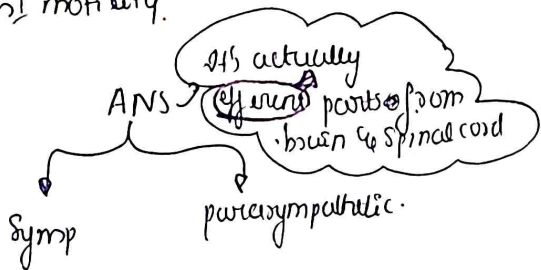 of motility.
It's actually
ANS efferent parts from
brain & spinal cord
Symp parasympathetic.